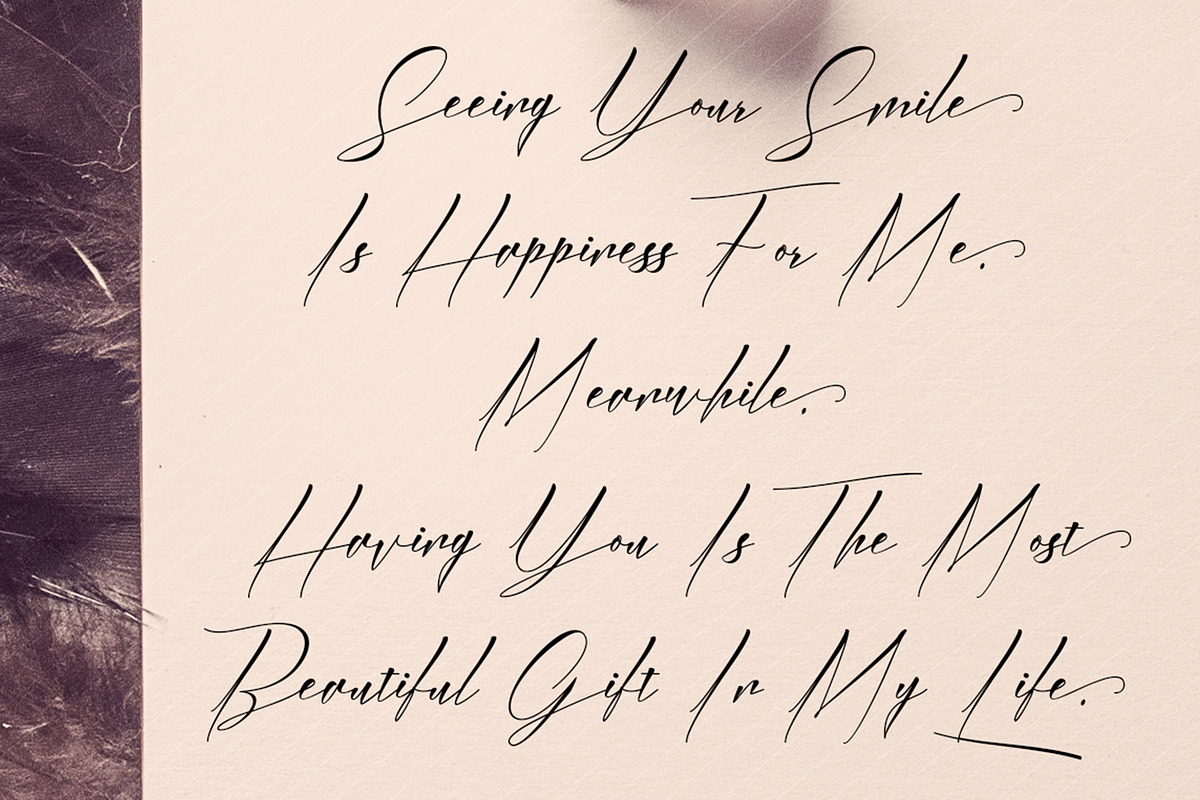 Seeing Your Smile
Is Happiness For Me.
Meanwhile.
Having You Is The Most
Beautiful Gift In My Life.